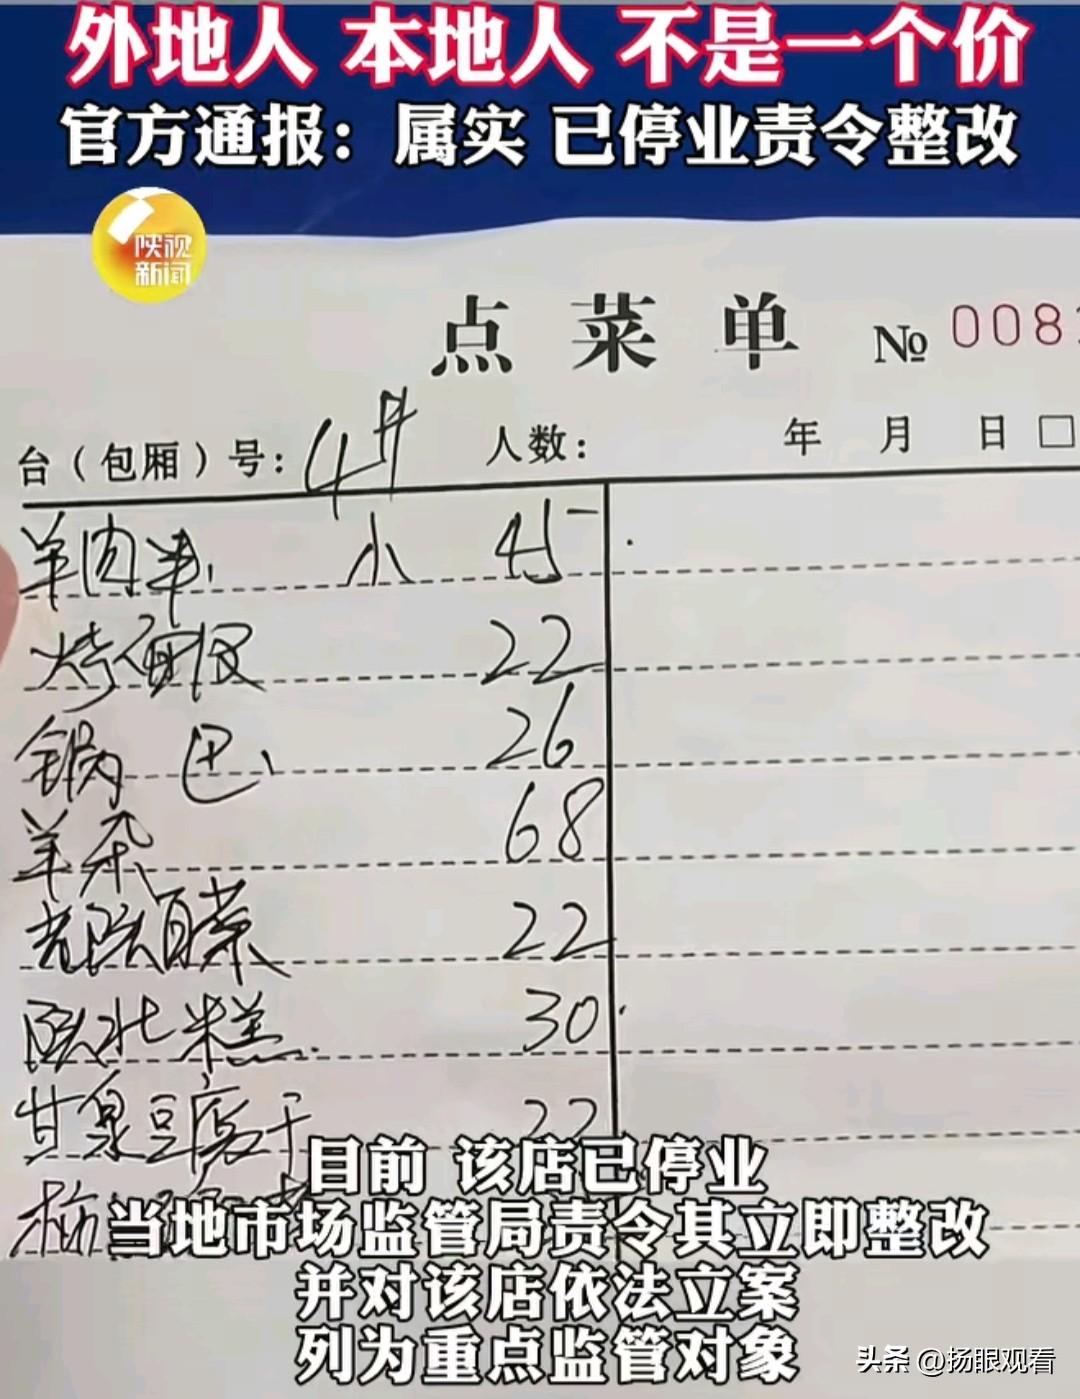 外地人 本地人 不是一个价
官方通报：属实 已停业责令整改
陕视
新闻
点菜单 № 008
台（包厢）号： 4# 人数： 年 月 日
羊肉 小 45
烤面 22
锅巴 26
羊杂 68
老陕 菜 22
陕北米糕 30
甘泉豆腐干 22
目前 该店已停业
当地市场监管局责令其立即整改
并对该店依法立案
列为重点监管对象
头条 @扬眼观看